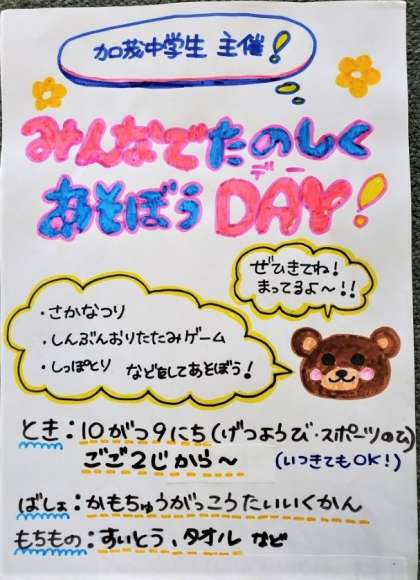 加茂中学生 主催!
みんなでたのしく
あそぼうDAY!
デー
ぜひきてね!
まってるよ〜!!
・さかなつり
・しんぶんおりたたみゲーム
・しっぽとり などをしてあそぼう!
とき:10がつ9にち(げつようび・スポーツのひ)
ごご2じから〜 (いつきてもOK!)
ばしょ:かもちゅうがっこうたいいくかん
もちもの:すいとう、タオル など